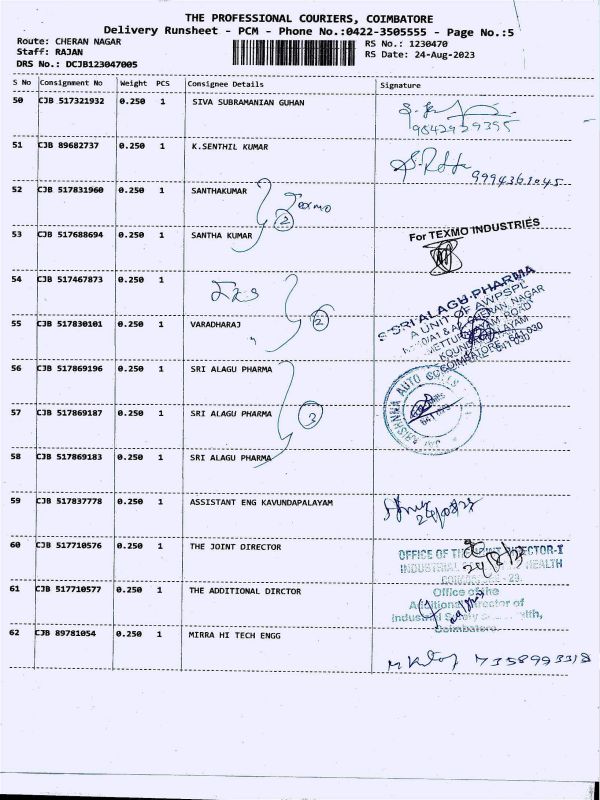 THE PROFESSIONAL COURIERS, COIMBATORE
Delivery Runsheet - PCM - Phone No.:0422-3505555 - Page No.:5
Route: CHERAN NAGAR
RS No.: 1230470
Staff: RAJAN
RS Date: 24-Aug-2023
DRS No.: DCJB123047005
S No Consignment No Weight PCS Consignee Details Signature
50 CJB 517321932 0.250 1 SIVA SUBRAMANIAN GUHAN
9842929395
51 CJB 89682737 0.250 1 K.SENTHIL KUMAR
52 CJB 517831960 0.250 1 SANTHAKUMAR
Texmo
2
53 CJB 517688694 0.250 1 SANTHA KUMAR
For TEXMO INDUSTRIES
54 CJB 517467873 0.250 1
55 CJB 517830101 0.250 1 VARADHARAJ
2
SRI ALAGU PHARMA
A UNIT OF AWPSPL
56 CJB 517869196 0.250 1 SRI ALAGU PHARMA
57 CJB 517869187 0.250 1 SRI ALAGU PHARMA
3
58 CJB 517869183 0.250 1 SRI ALAGU PHARMA
59 CJB 517837778 0.250 1 ASSISTANT ENG KAVUNDAPALAYAM
24/08/23
60 CJB 517710576 0.250 1 THE JOINT DIRECTOR
OFFICE OF THE JOINT DIRECTOR-I
24/8/23
61 CJB 517710577 0.250 1 THE ADDITIONAL DIRCTOR
Office of the
Additional Director of
62 CJB 89781054 0.250 1 MIRRA HI TECH ENGG
7358993318